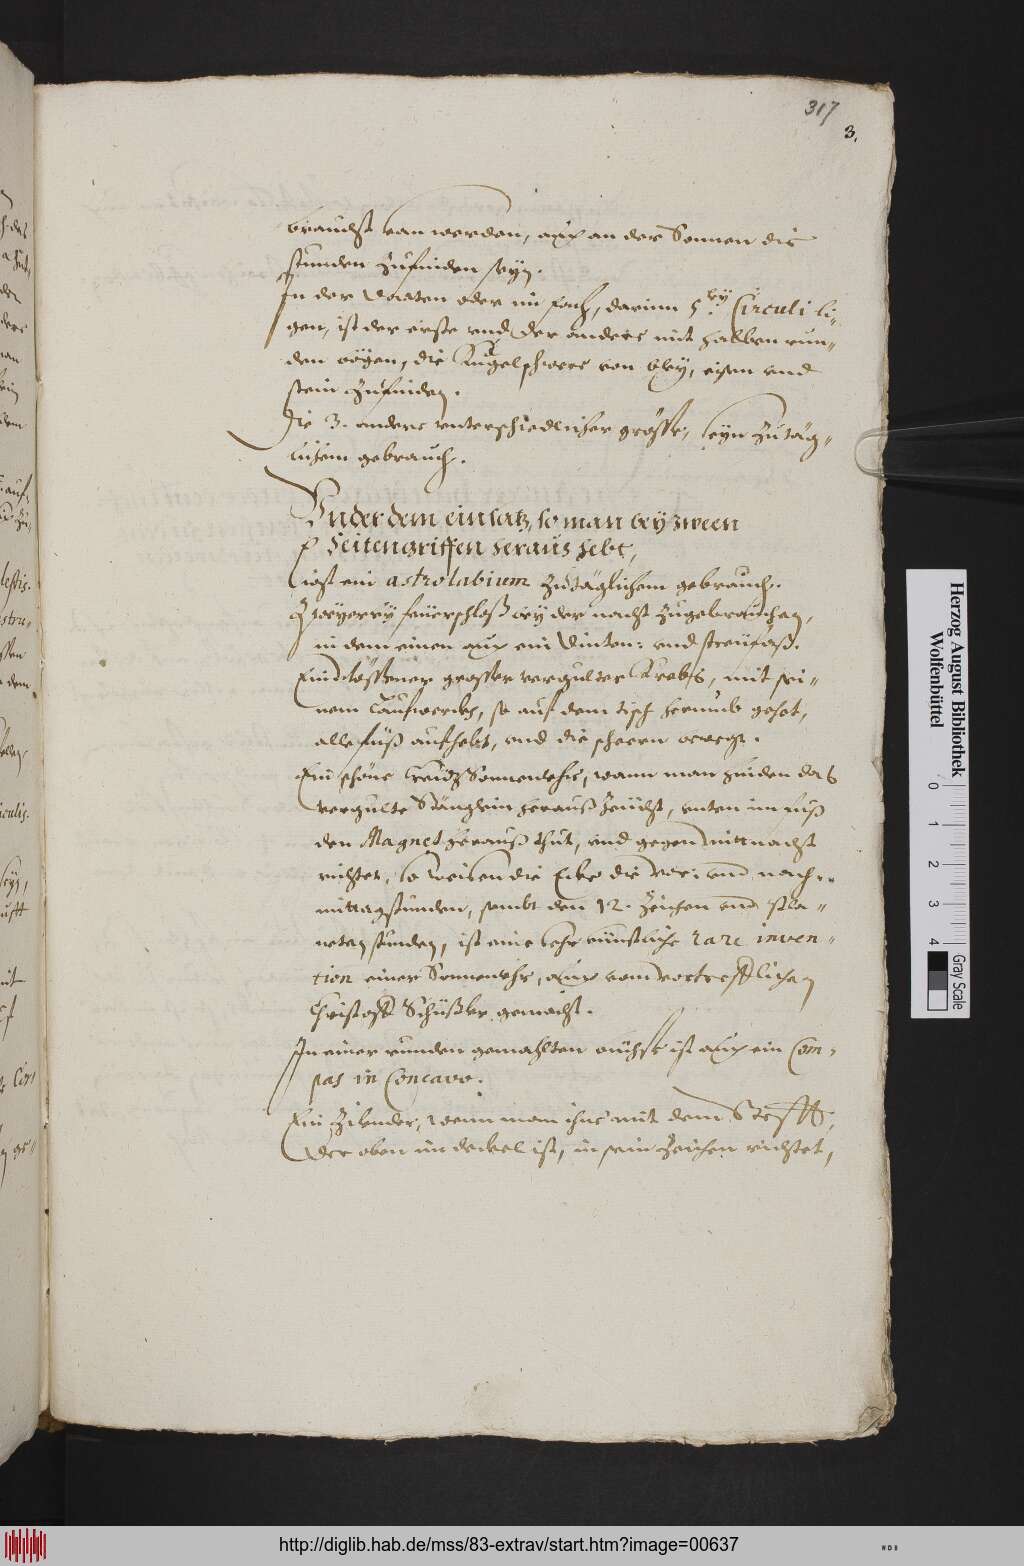 317
3.
braucht kan werden, auch an der Sonnen die
stunden zufinden seyn.
In der Braiten oder im fach, darinn 5erley Circuli li-
gen, ist der erste vnd der andere mit halben run-
den bögen, die Kugelschwere von bley, eisen vnd
stein zufinden.
Die 3. andere vnterschiedlicher grösse, seyn zu täg-
lichem gebrauch.
Vnder dem einsatz, so man bey zween
Seitengriffen heraus hebt,
ist ein astrolabium zu täglichem gebrauch.
Zweyerley feüerschloß bey der nacht zugebrauchen,
in dem einen auch ein Dinten- vnd streüfaß.
Ein grosser vergulter Krebs, mit sei-
nem Laufwerckh, so auf dem tisch herumb gehet,
alle füß aufhebt, vnd die scheern bewegt.
Ein schöne Sonnenvhr, wann man hinden das
vergulte Stänglein herauß zeücht, vnten im fuß
den Magnet herauß thut, vnd gegen mittnacht
richtet, so weisen die Ecke die vor: vnd nach-
mittagstunden, sambt den 12. Zeichen vnd Pla-
neten stunden, ist eine sehr künstliche rare inven-
tion einer Sonnenvhr, auch vom vortrefflichen
Christoff Schüßler gemacht.
In einer runden gemahlten büchse ist auch ein Com-
pas in Concavo.
Ein Zilender, wenn man ihne mit dem Stefft,
der oben im deckel ist, in sein Zeichen richtet,
Herzog August Bibliothek
Wolfenbüttel
0 1 2 3 4
Gray Scale
http://diglib.hab.de/mss/83-extrav/start.htm?image=00637